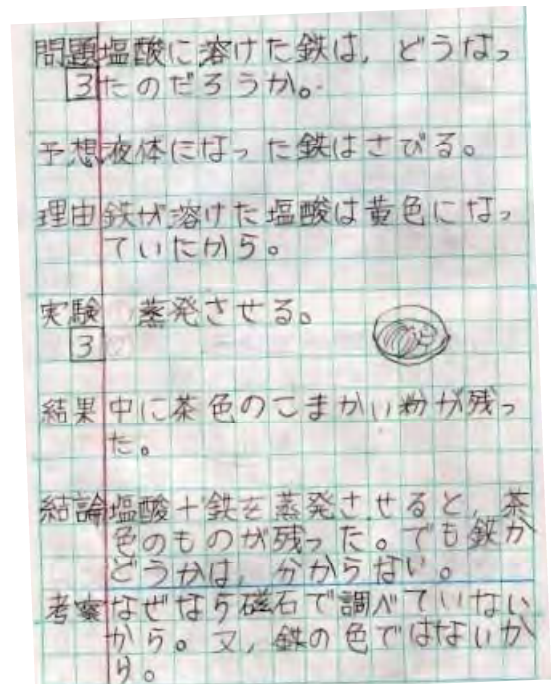 問題塩酸に溶けた鉄は，どうなっ
3 たのだろうか。
予想液体になった鉄はさびる。
理由鉄が溶けた塩酸は黄色になっ
ていたから。
実験 蒸発させる。
3
結果中に茶色のこまかい粉が残っ
た。
結論塩酸＋鉄を蒸発させると，茶
色のものが残った。でも鉄か
どうかは，分からない。
考察なぜなら磁石で調べていない
から。又，鉄の色ではないか
ら。